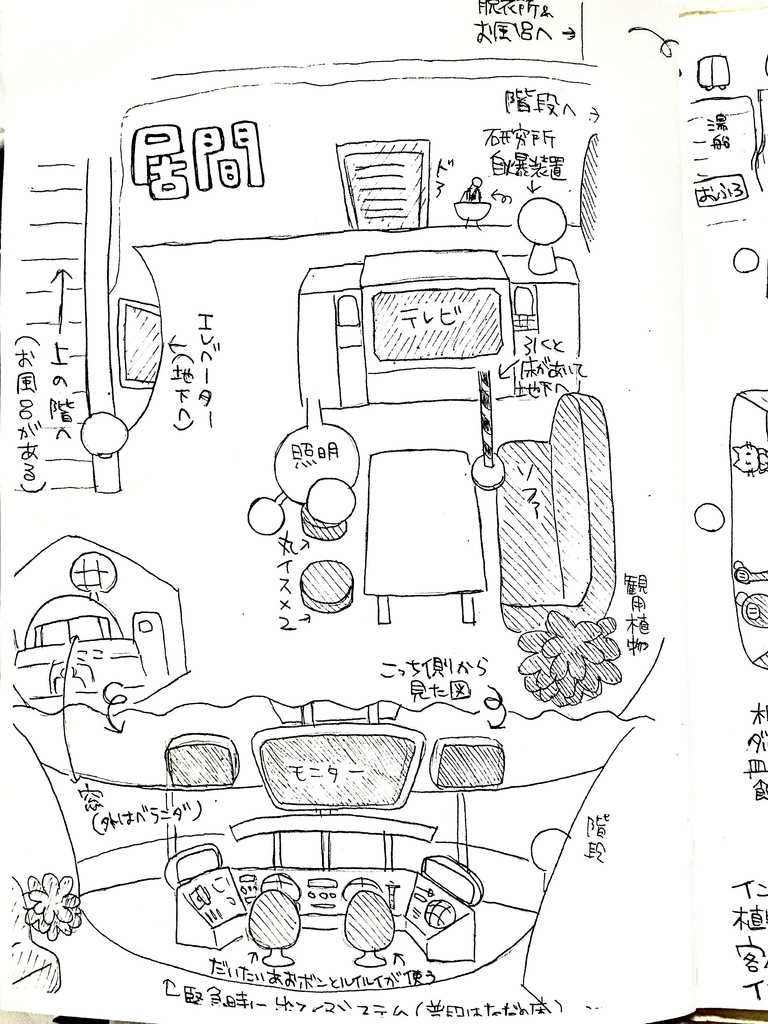 脱衣所&
お風呂へ→
階段へ
研究所
自爆装置
湯
船
おふろ
居間
ドア
テレビ
エレベーター
(地下へ)
上の階へ
(お風呂がある)
引くと
床があいて
地下へ
照明
ソファ
丸イス×2
観用植物
こっち側から
見た図
モニター
窓
(外はベランダ)
階段
だいたいあおボンとルイルイが使う
緊急時に出てくるシステム(普段はただの床)
皿
イン
植
客